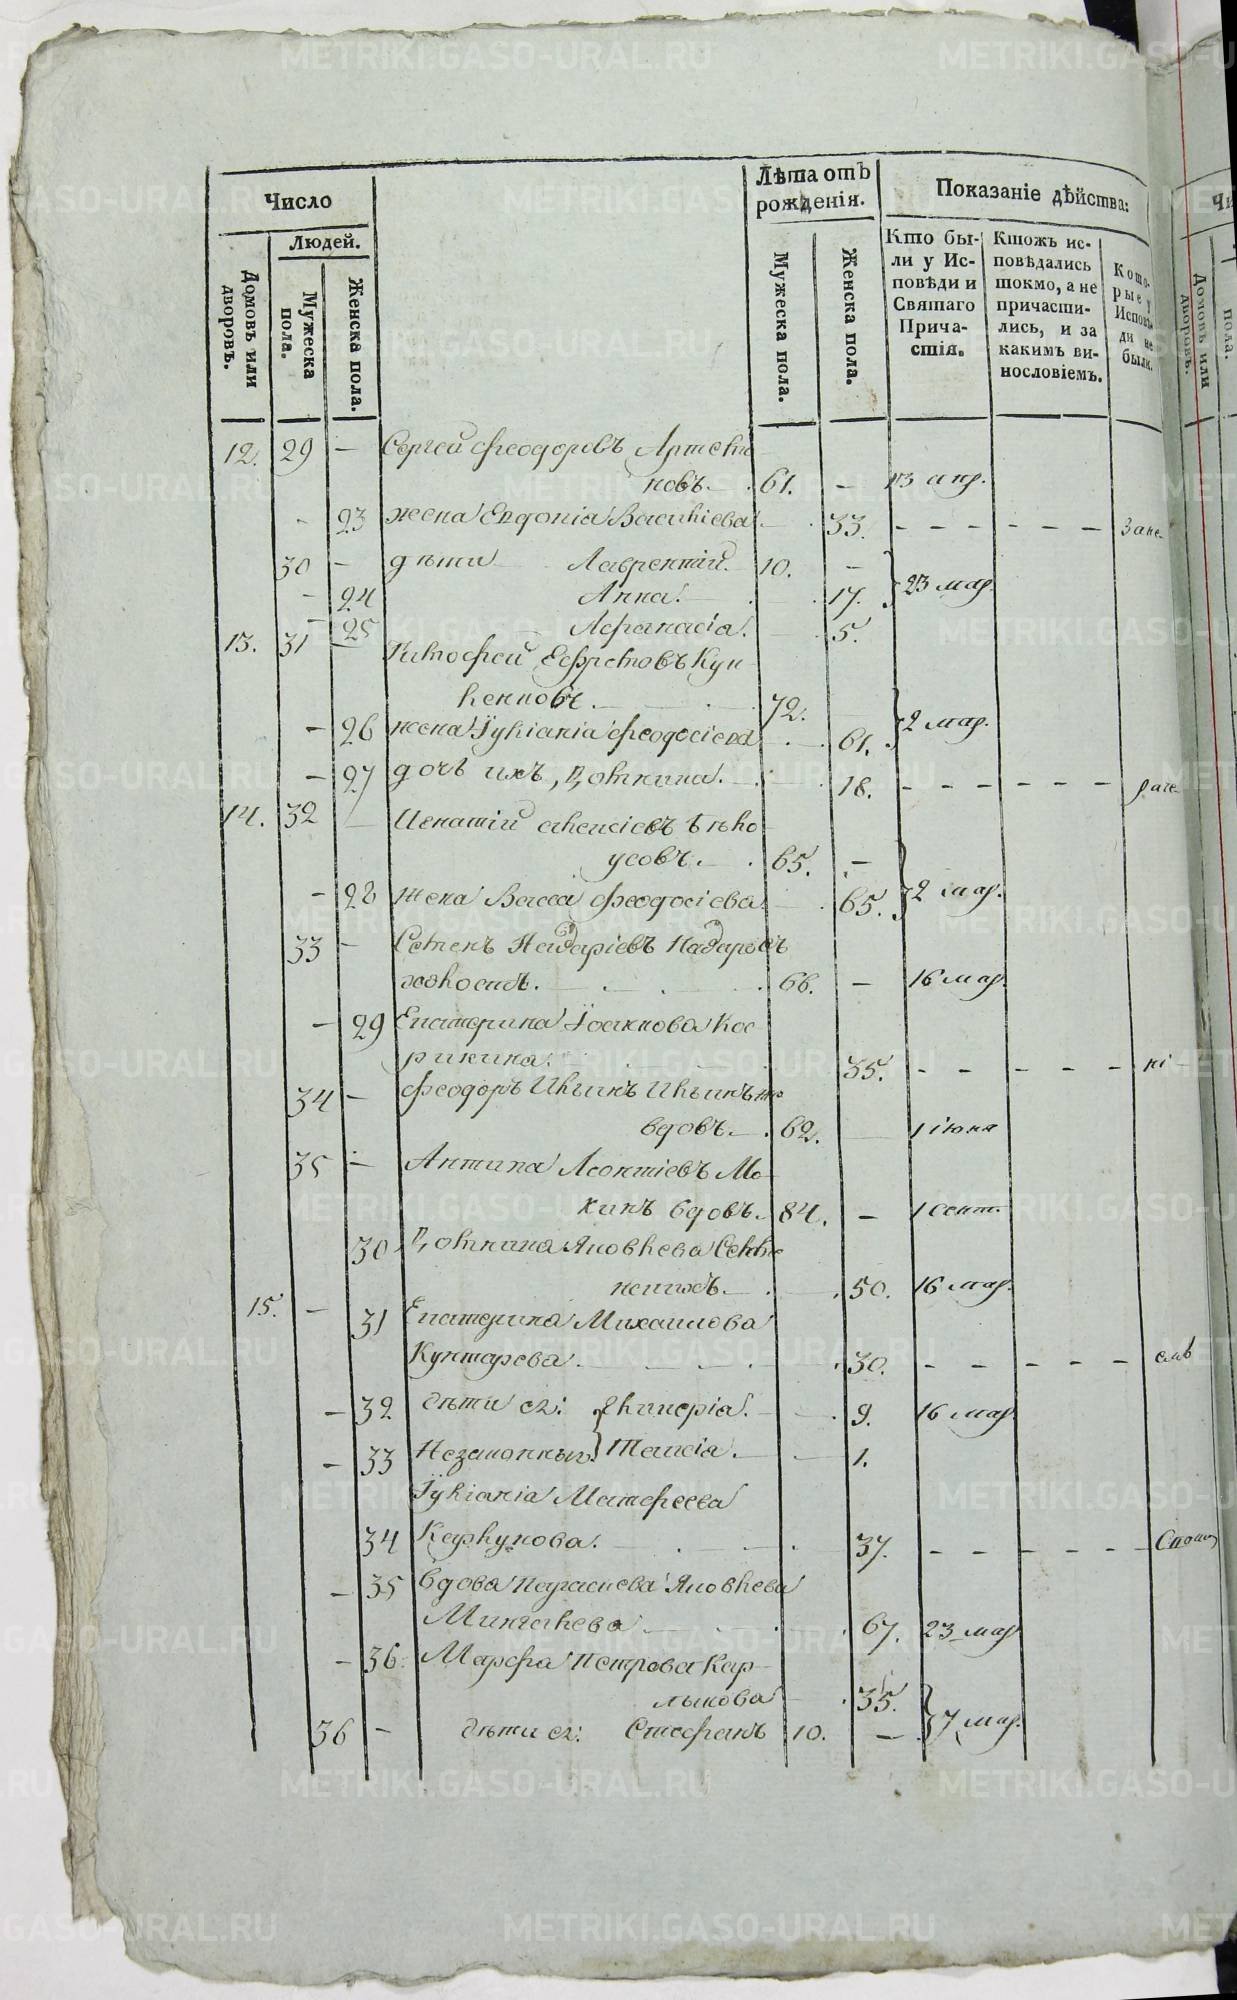 Число
Лѣта отъ рожденія.
Показаніе дѣйства:
Домовъ или дворовъ.
Людей.
Мужеска пола.
Женска пола.
Мужеска пола.
Женска пола.
Кто бы-
ли у Ис-
повѣди и
Святаго
Прича-
стія.
Ктожъ ис-
повѣдались
токмо, а не
причасти-
лись, и за
какимъ ви-
нословіемъ.
Кото-
рые у
Исповѣ-
ди не
были.
12. 29 — Сергей Феодоровъ Артемо
новъ. 61. — 13 апр.
— 23 жена Евдокіа Василіева 33. — — — — — — Зане
30 — дѣти Лаврентій 10. —
— 24 Анна. 17. 23 мар.
— 25 Афанасіа. 5.
13. 31 — Тимофей Ефремовъ Кун
72.
— 26 жена Іуліаніа Феодосіева 61. 2 мар.
— 27 дочь ихъ, 18. — — — — —
14. 32 — Игнатій Алексіевъ Бѣло
усовъ. 65. —
— 28 жена Васса Феодосіева 65. 2 мар.
33 — Семенъ Назаріевъ Назаровъ
холостъ. 66. — 16 мар.
— 29 Екатерина Іоаннова Кос
рикина. 35. — — — — —
34 — Феодоръ Ильинъ Ильинъ
вдовъ. 62. 1 іюня
35 — Антипа Леонтіевъ Мо
кинъ вдовъ. 84. — 1 сент.
30 Яковлева
50. 16 мар.
15. — 31 Екатерина Михаилова
30. — — — — —
— 32 дѣти ея: Гликеріа. 9. 16 мар.
— 33 Незаконныя Таисіа. 1.
Іуліаніа Матфеева
34 Карпунова. 37. — — — — —
— 35 вдова Параскева Яковлева
67. 23 мар
— 36. Марфа Петрова Кар
пыкова 35.
36 — дѣти ея: Стефанъ 10. — 7 мар.
METRIKI.GASO-URAL.RU